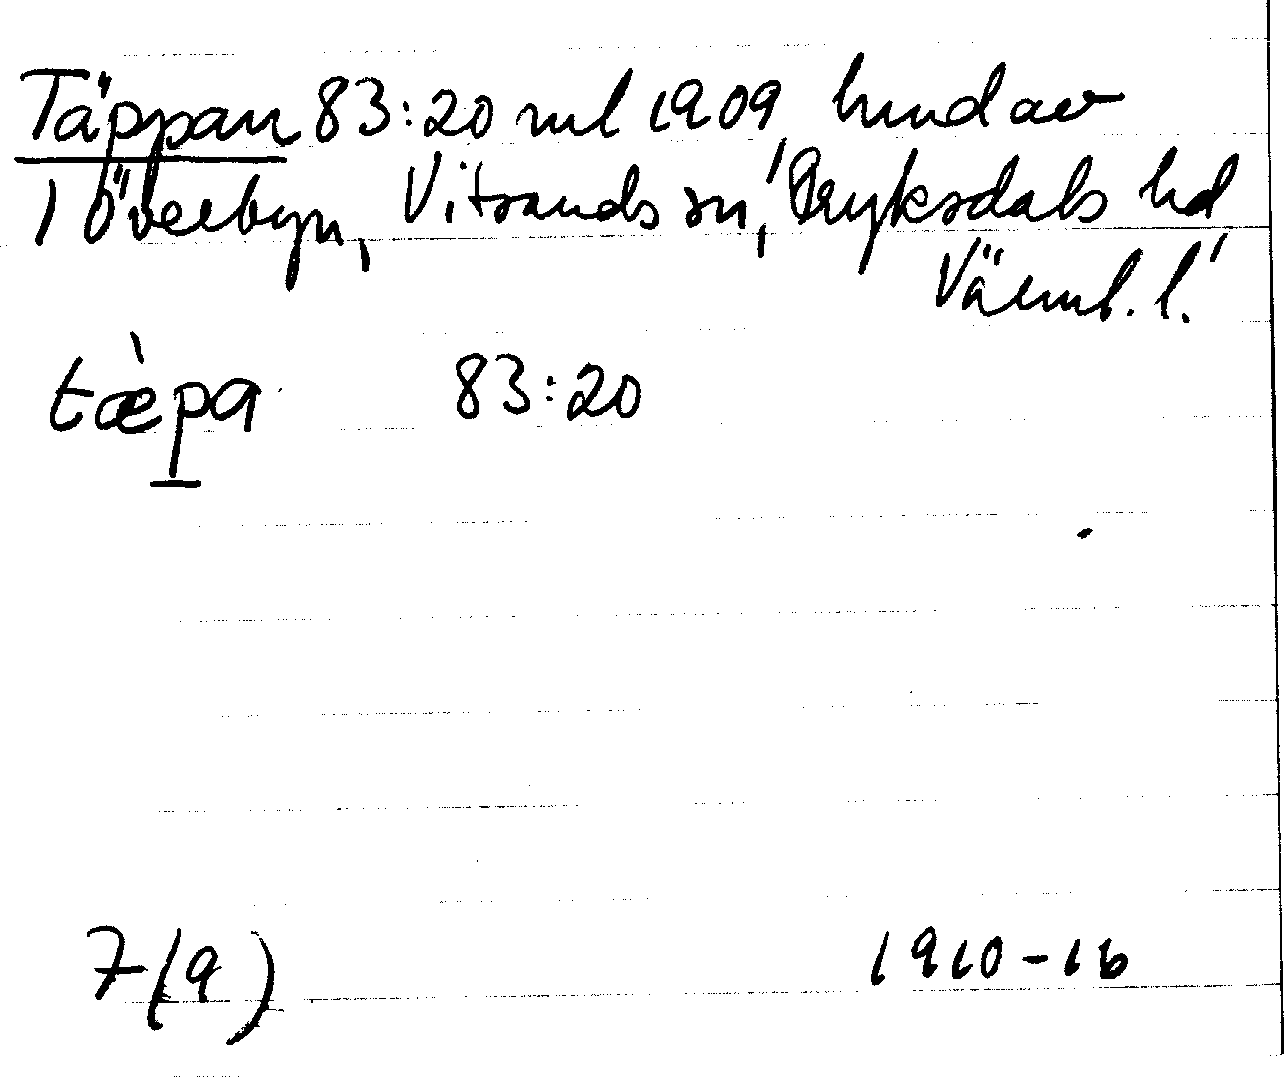 Täppan 83:20 ml 1909 hmd av
1 överbyn, Vitsands sn, Fryksdals hd
Värml. l.
tæ̀pa 83:20
7(9) 1910-16